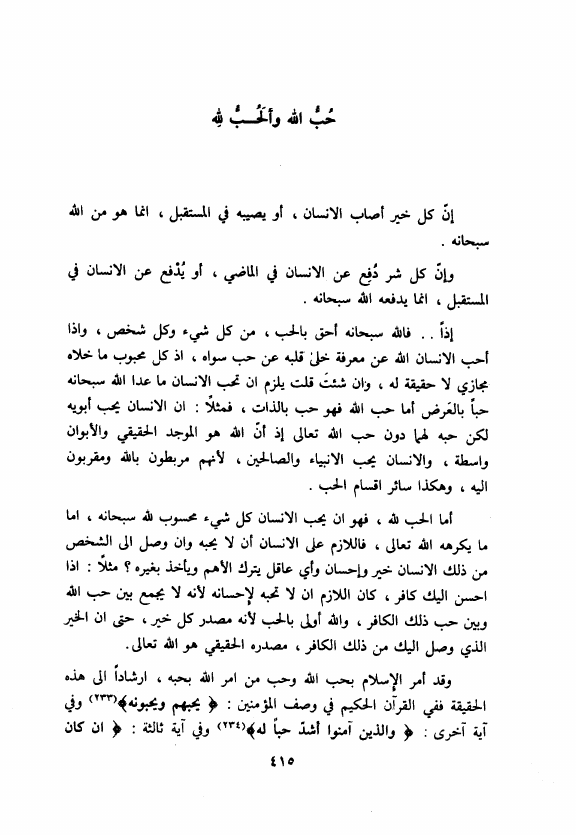 حُبُّ الله وألحُـــبُّ لِله
إنّ كل خير أصاب الانسان ، أو يصيبه في المستقبل ، انما هو من الله
سبحانه .
وإنّ كل شر دُفِع عن الانسان في الماضي ، أو يُدْفع عن الانسان في
المستقبل ، انما يدفعه الله سبحانه .
إذاً .. فالله سبحانه أحق بالحب ، من كل شيء وكل شخص ، واذا
أحب الانسان الله عن معرفة خلىٰ قلبه عن حب سواه ، اذ كل محبوب ما خلاه
مجازي لا حقيقة له ، وان شئتَ قلت يلزم ان تحب الانسان ما عدا الله سبحانه
حباً بالعَرض أما حب الله فهو حب بالذات ، فمثلاً : ان الانسان يحب أبويه
لكن حبه لهما دون حب الله تعالى إذ أنّ الله هو الموجد الحقيقي والأبوان
واسطة ، والانسان يحب الانبياء والصالحين ، لأنهم مربطون بالله ومقربون
اليه ، وهكذا سائر اقسام الحب .
أما الحب لله ، فهو ان يحب الانسان كل شيء محسوب لله سبحانه ، اما
ما يكرهه الله تعالى ، فاللازم على الانسان أن لا يحبه وان وصل الى الشخص
من ذلك الانسان خير وإحسان وأي عاقل يترك الأهم ويأخذ بغيره ؟ مثلاً : اذا
احسن اليك كافر ، كان اللازم ان لا تحبه لإحسانه لأنه لا يجمع بين حب الله
وبين حب ذلك الكافر ، والله أولى بالحب لأنه مصدر كل خير ، حتى ان الخير
الذي وصل اليك من ذلك الكافر ، مصدره الحقيقي هو الله تعالى.
وقد أمر الإسلام بحب الله وحب من امر الله بحبه ، ارشاداً الى هذه
الحقيقة ففي القرآن الحكيم في وصف المؤمنين : ﴿ يحبهم ويحبونه﴾(٢٣٣) وفي
آية أخرى : ﴿ والذين آمنوا أشدّ حباً له﴾(٢٣٤) وفي آية ثالثة : ﴿ ان كان
٤١٥